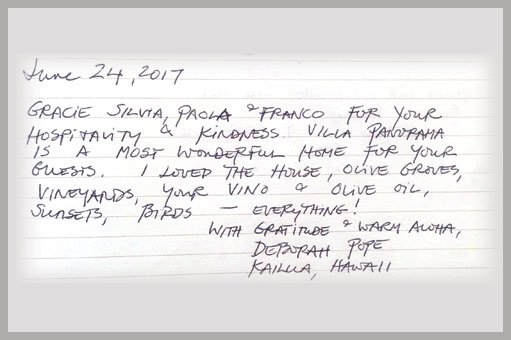 June 24, 2017
GRACIE SILVIA, PAOLA & FRANCO FOR YOUR
HOSPITALITY & KINDNESS. VILLA PANORAMA
IS A MOST WONDERFUL HOME FOR YOUR
GUESTS. I LOVED THE HOUSE, OLIVE GROVES,
VINEYARDS, YOUR VINO & OLIVE OIL,
SUNSETS, BIRDS — EVERYTHING!
WITH GRATITUDE & WARM ALOHA,
DEBORAH POPE
KAILUA, HAWAII